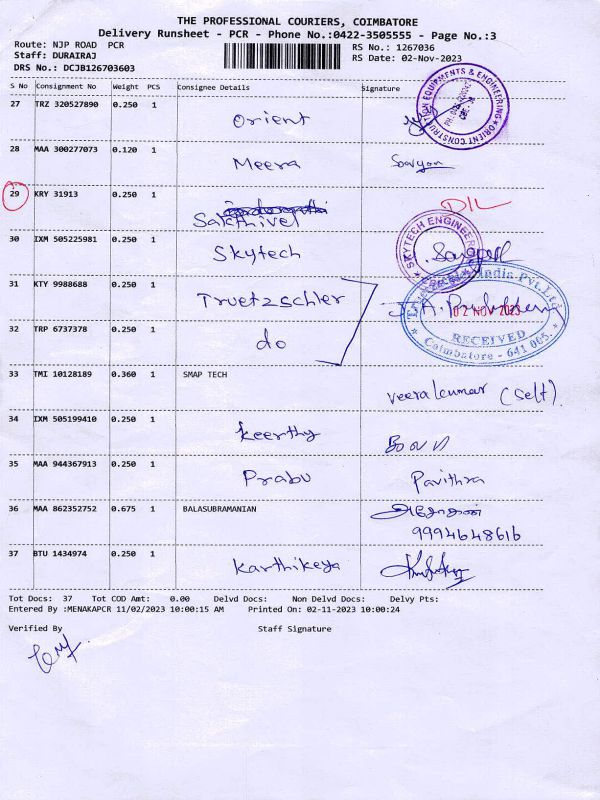 THE PROFESSIONAL COURIERS, COIMBATORE
Delivery Runsheet - PCR - Phone No.:0422-3505555 - Page No.:3
Route: NJP ROAD PCR
RS No.: 1267036
Staff: DURAIRAJ
RS Date: 02-Nov-2023
DRS No.: DCJB126703603
S No Consignment No Weight PCS Consignee Details Signature
27 TRZ 320527890 0.250 1 Orient
ORIENT CONSTRUCTION EQUIPMENTS & ENGINEERING
28 MAA 300277073 0.120 1 Meera
29 KRY 31913 0.250 1 Sakthivel D/L
30 IXM 505225981 0.250 1 Skytech
SKYTECH ENGINEER
31 KTY 9988688 0.250 1 Truetzschler
India Pvt. Ltd
02 NOV 2023
RECEIVED
Coimbatore - 641 005.
32 TRP 6737378 0.250 1 do
33 TMI 10128189 0.360 1 SMAP TECH veerakumar (self).
34 IXM 505199410 0.250 1 keerthy
35 MAA 944367913 0.250 1 Prabu Pavithra
36 MAA 862352752 0.675 1 BALASUBRAMANIAN
9994648616
37 BTU 1434974 0.250 1 Karthikeya
Tot Docs: 37 Tot COD Amt: 0.00 Delvd Docs: Non Delvd Docs: Delvy Pts:
Entered By :MENAKAPCR 11/02/2023 10:00:15 AM Printed On: 02-11-2023 10:00:24
Verified By Staff Signature